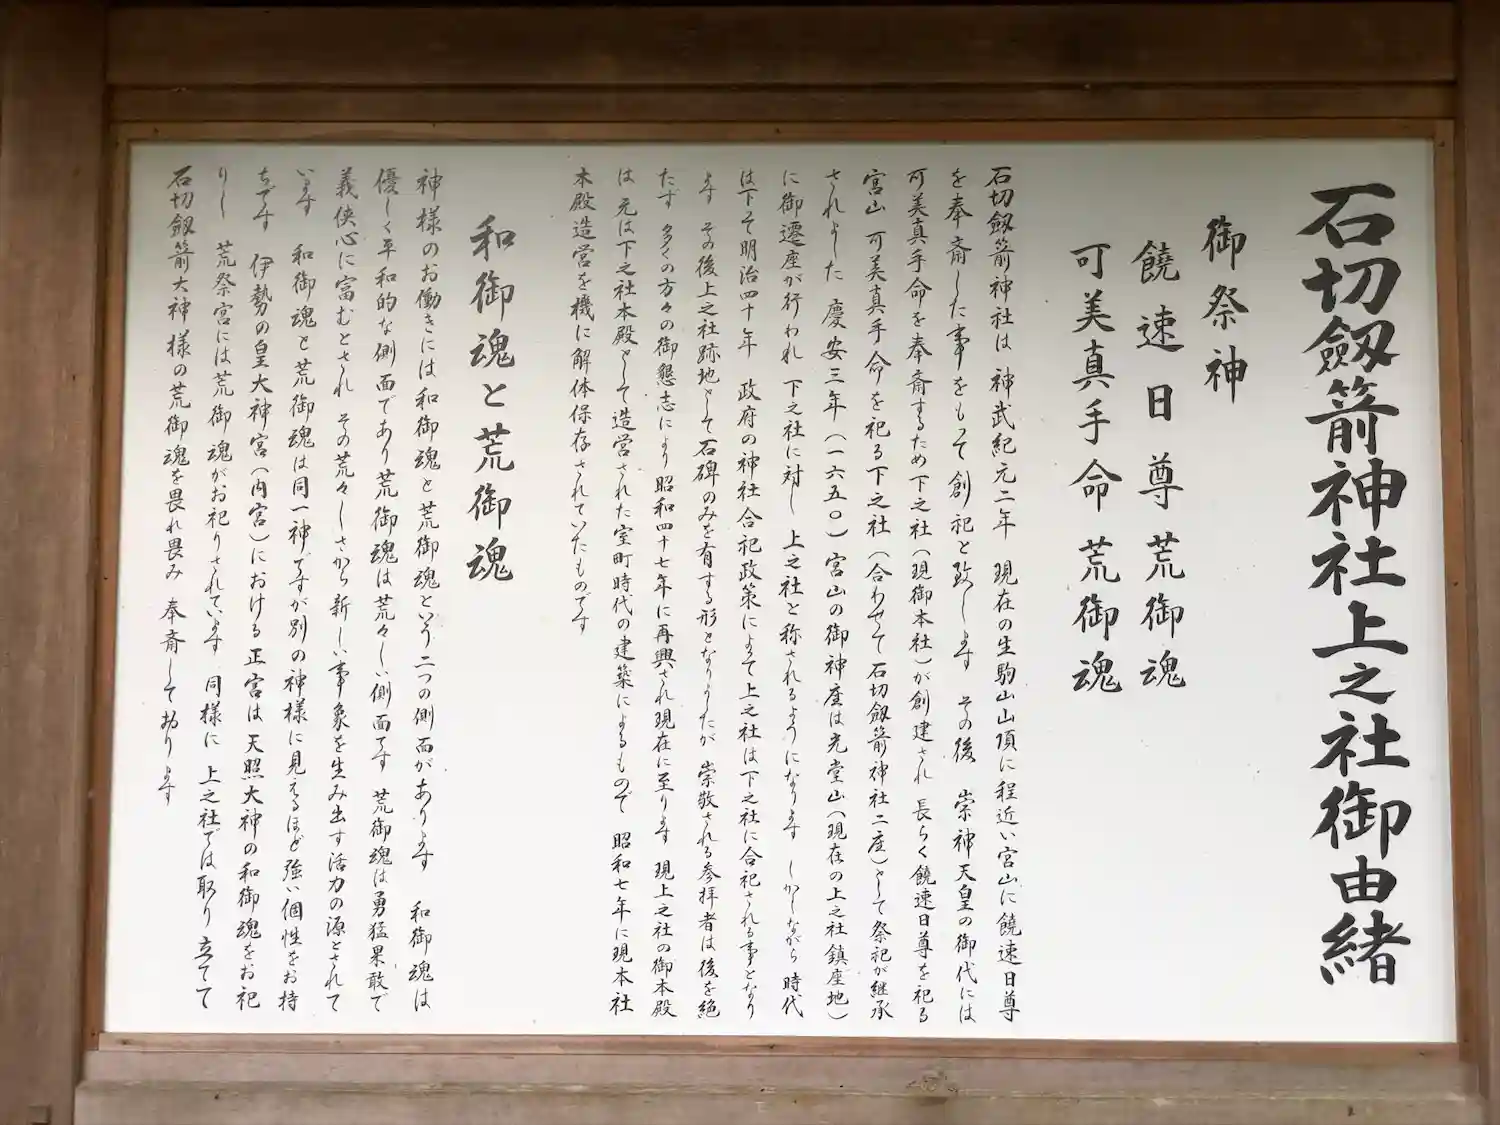 石切劔箭神社上之社御由緒
御祭神
饒速日尊 荒御魂
可美真手命 荒御魂
石切劔箭神社は 神武紀元二年 現在の生駒山山頂に程近い宮山に饒速日尊
を奉斎した事をもって創祀と致します その後 崇神天皇の御代には
可美真手命を奉斎するため下之社(現御本社)が創建され 長らく饒速日尊を祀る
宮山 可美真手命を祀る下之社(合わせて石切劔箭神社二座)として祭祀が継承
されました 慶安三年(一六五〇)宮山の御神座は光堂山(現在の上之社鎮座地)
に御遷座が行われ 下之社に対し 上之社と称されるようになります しかしながら 時代
は下そ明治四十年 政府の神社合祀政策によって上之社は下之社に合祀される事となり
ます その後上之社跡地として石碑のみを有する形となりましたが 崇敬される参拝者は後を絶
たず 多くの方々の御懇志により昭和四十七年に再興され現在に至ります 現上之社の御本殿
は 元は下之社本殿として造営された室町時代の建築によるもので 昭和七年に現本社
本殿造営を機に解体保存されていたものです
和御魂と荒御魂
神様のお働きには和御魂と荒御魂という二つの側面があります 和御魂は
優しく平和的な側面であり荒御魂は荒々しい側面です 荒御魂は勇猛果敢で
義侠心に富むとされ その荒々しさから新しい事象を生み出す活力の源とされて
います 和御魂と荒御魂は同一神ですが別の神様に見えるほど強い個性をお持
ちです 伊勢の皇大神宮(内宮)における正宮は天照大神の和御魂をお祀
りし 荒祭宮には荒御魂がお祀りされています 同様に 上之社では取り立てて
石切劔箭大神様の荒御魂を畏れ畏み 奉斎しております